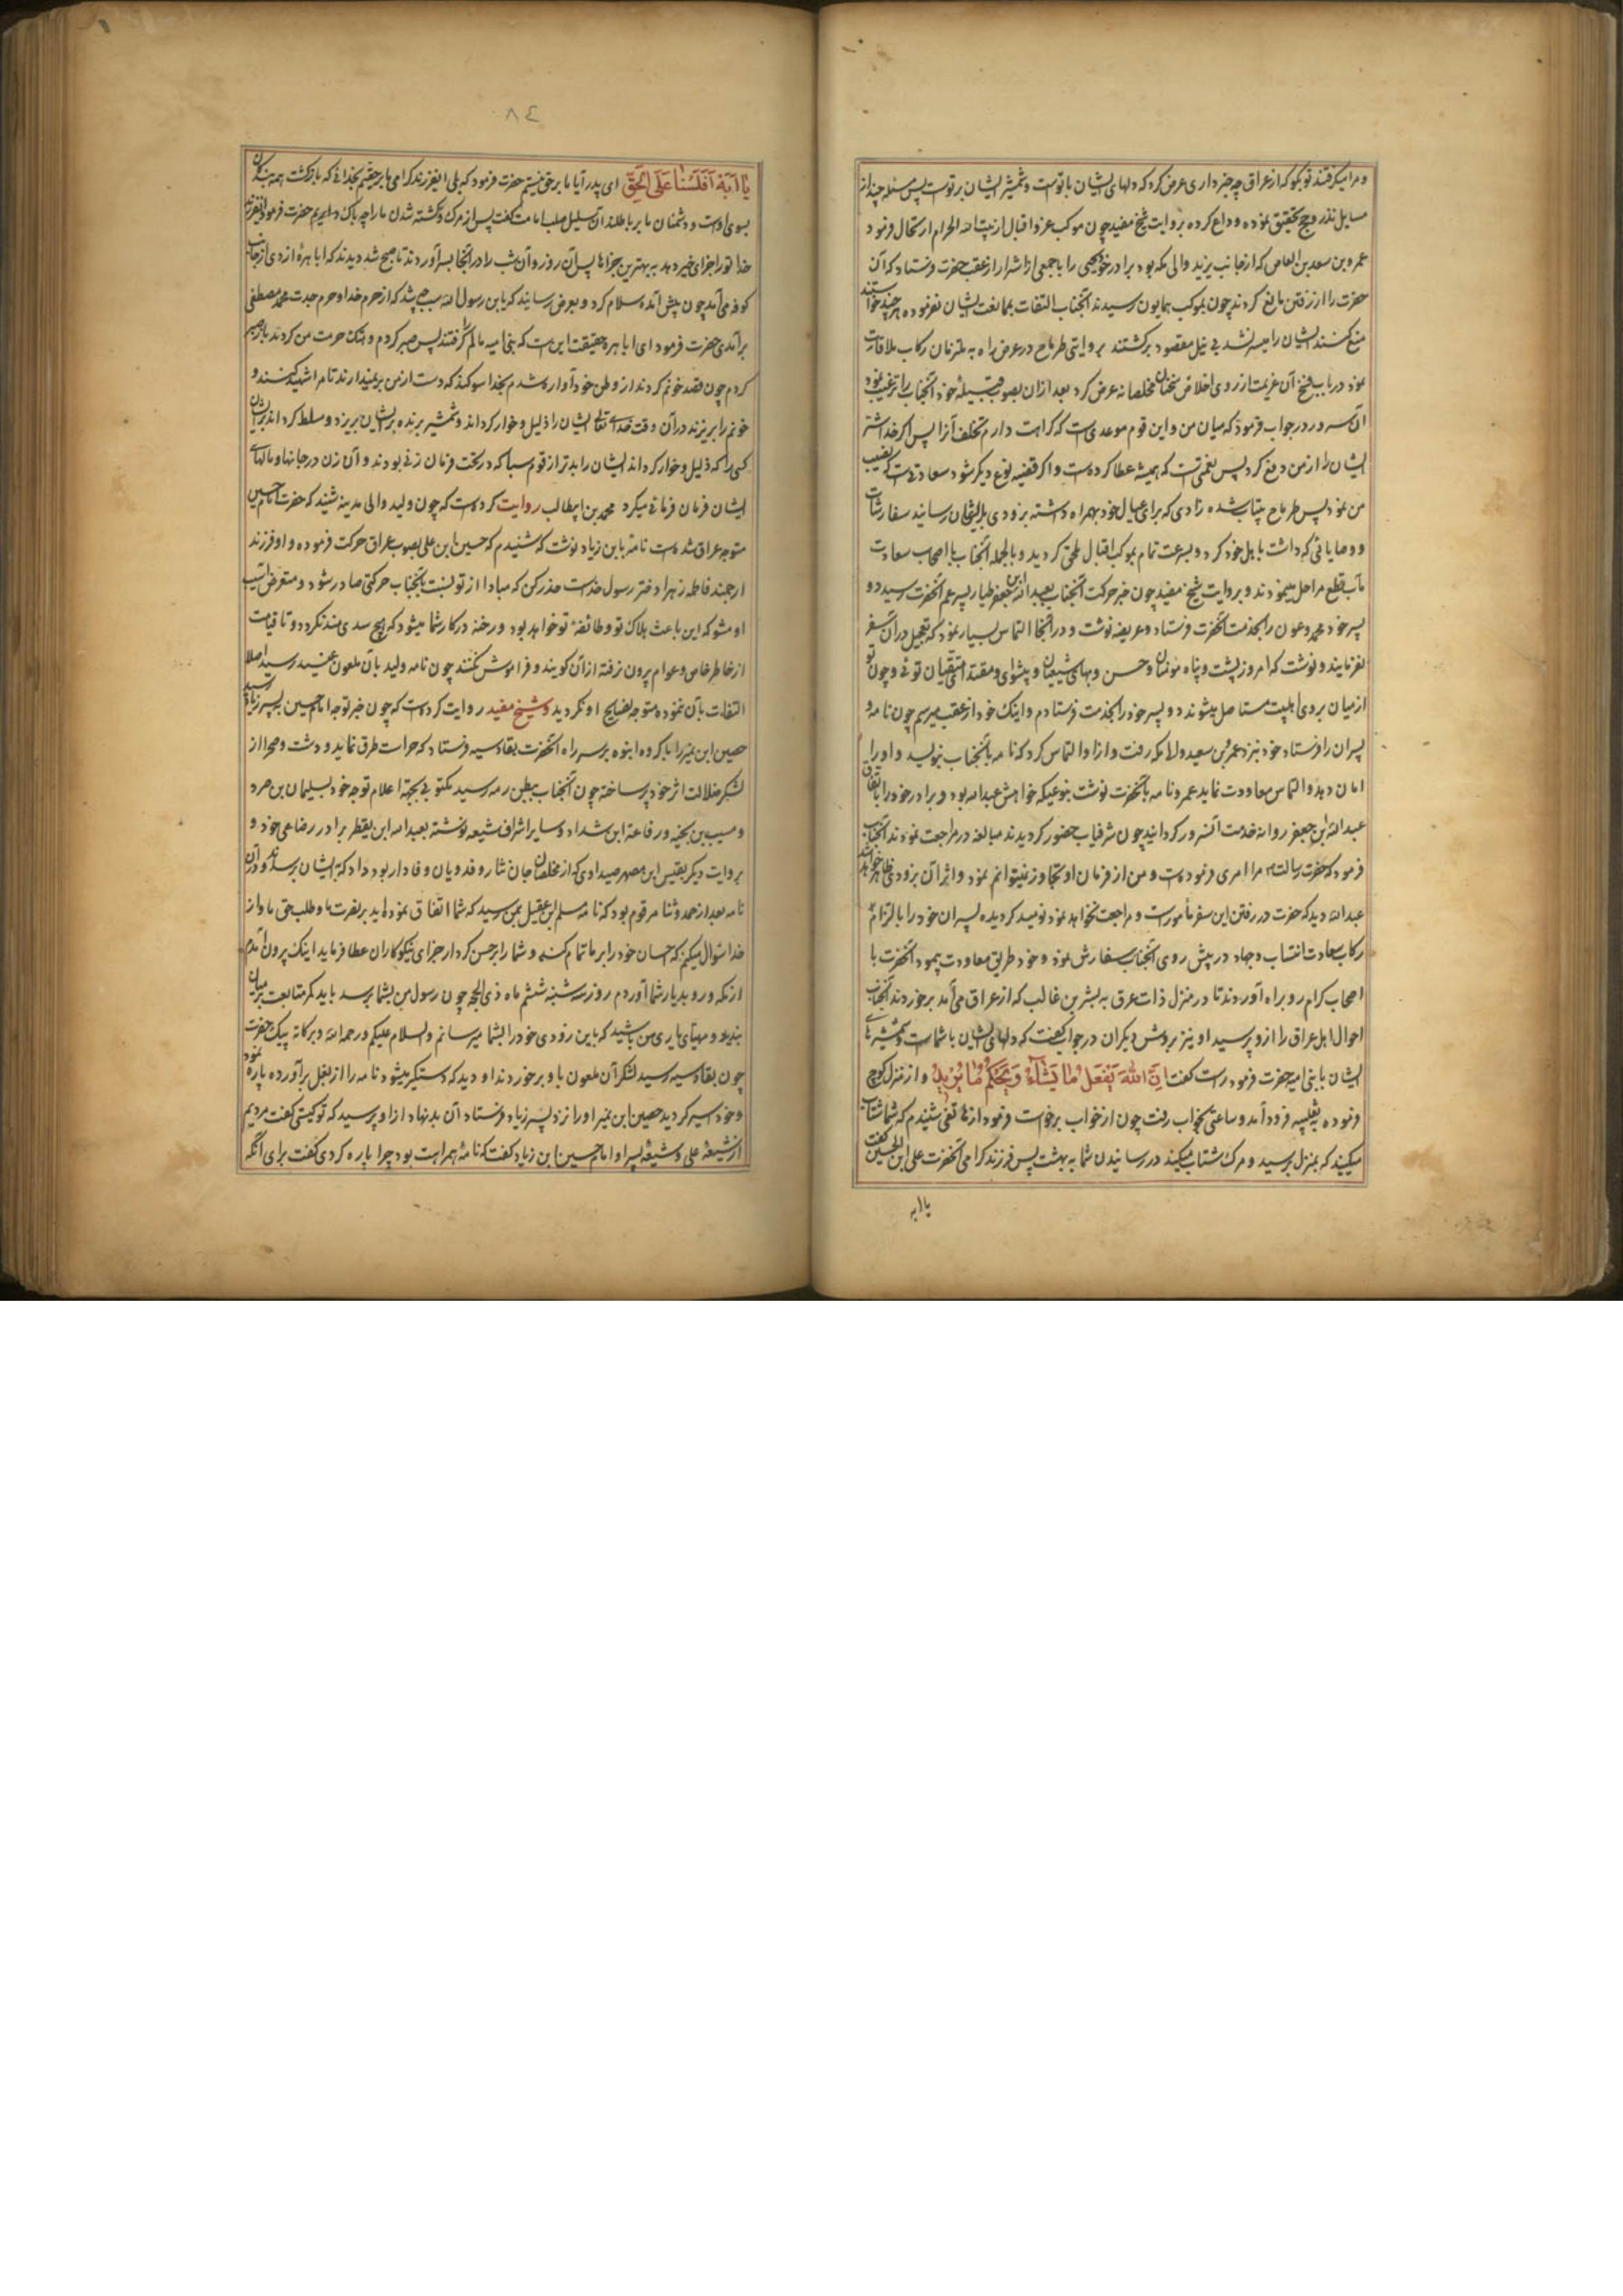 و مرا میکرفتند تو بگو که از عراق چه خبر داری عرض کرد که دلهای ایشان با تو است و شمشیر ایشان بر تو است پس مسئله چند از
مسایل نذر و حج تحقیق نموده وداع کرده بروایت شیخ مفید چون موکب عز و اقبال از بیت الله الحرام ارتحال فرمود
عمرو بن سعد بن العاص که از جانب یزید والی مکه بود برادر خود یحیی را با جمعی از اشرار از عقب حضرت فرستاد که آن
حضرت را از رفتن مانع کردند چون بموکب همایون رسیدند آنجناب التفات بممانعت ایشان نفرموده هر چند خواستند
منع کنند ایشان را میسر نشد بی نیل مقصود برکشتند بروایتی طرماح در عرض راه به ملتزمان رکاب ملاقات
نمود در باب فسخ آن عزیمت از روی اخلاص سخنان مخلصانه عرض کرد بعد ازان بصوب قبیلهٔ خود آنجناب را ترغیب نمود
آن سرور در جواب فرمود که میان من و این قوم موعدی است که کراهت دارم تخلف آنرا پس اگر خدا شر
ایشان را از من دفع کرد پس نعمتی است که همیشه عطا کرده است و اگر قضیه نوع دیگر شود سعادتی است که نصیب
من نمود پس طرماح بیتاب شده زادی که برای عیال خود بهمراه داشته بزودی بایشان رسانید سفارشات
و وصایائی که داشت باهل خود کرد و بسرعت تمام بموکب اقبال ملحق کردید و بالجمله آنجناب با اصحاب سعادت
مآب قطع مراحل میمودند و بروایت شیخ مفید چون خبر حرکت آنجناب بعبدالله ابن جعفر طیار پسر عم آنحضرت رسید دو
پسر خود محمد و عون را بخدمت آنحضرت فرستاد و عریضه نوشت و در آنجا التماس بسیار نمود که تعجیل در آن سفر
نفرمایند و نوشت که امروز پشت و پناه مومنان و حسن و بهای شیعیان و پیشوای و مقتدا متقیان توئی و چون تو
از میان بروی اهلبیت مستاصل میشوند دو پسر خود را بخدمت فرستادم و اینک خود از عقب میرسم چون نامه و
پسران را فرستاد خود نزد عمرو بن سعید والا مکه رفت و ازا و التماس کرد که نامه بآنجناب بنویسد و او را
امان دهد و التماس معاودت نماید عمرو نامه بآنحضرت نوشت بنوعیکه خواهش عبدالله بود و برادر خود را باتفاق
عبدالله ابن جعفر روانه خدمت آنسرور کردانید چون شرفیاب حضور کردیدند مبالغه در مراجعت نمودند آنجناب
فرمود که حضرت رسالت مرا امری فرموده است و من از فرمان او تجاوز نمیتوانم نمود و اثر آن بزودی ظاهر خواهد شد
عبدالله دید که حضرت در رفتن این سفر مأمور است و مراجعت نخواهد نمود نومید کردیده پسران خود را بالتزام
رکاب سعادت انتساب و جهاد در پیش روی آنجناب سفارش نمود و خود طریق معاودت پیمود آنحضرت با
اصحاب کرام رو براه آوردند تا در منزل ذات عرق به بشر بن غالب که از عراق می آمد برخوردند آنجناب
احوال اهل عراق را ازو پرسید او نیز بروش دیکران در جواب گفت که دلهای ایشان با شماست و شمشیرهای
ایشان با بنی امیه حضرت فرمود راست گفت اِنَّ اللهَ یَفعَلُ مَا یَشَاءُ وَیَحکُمُ مَا یُرِیدُ و از منزل کوچ
فرموده بثعلبیه فرود آمد و ساعتی بخواب رفت چون از خواب برخواست فرمود از هاتفی شنیدم که شما شتاب
میکنید که بمنزل برسید و مرک شتاب میکند در رسانیدن شما به بهشت پس فرزند کرامی آنحضرت علی ابن الحسین گفت
یا ابه
٨٤
یَا اَبَهْ اَفَلَسْنَا عَلَی الحَقِّ ای پدر آیا ما بر حق نیستم حضرت فرمود که بلی ایفرزند کرامی ما بر حقیم بخدائی که بازکشت همه بندکان
بسوی اوست و دشمنان ما بر باطلند آن سلیل صلب امامت گفت پس از مرک و کشته شدن ما را چه باک داریم حضرت فرمود ایفرزند
خدا تو را جزای خیر دهد به بهترین جزاها پس آن روز و آن شب را در آنجا بسر آوردند تا صبح شد دیدند که ابا هرهٔ ازدی از جانب
کوفه می آمد چون پیش آمده سلام کرد و بعرض رسانید که یابن رسول الله سبب چه شد که از حرم خدا و حرم جدت محمد مصطفی
برآمدی حضرت فرمود ای ابا هره حقیقت این است که بنی امیه مالم را گرفتند پس صبر کردم و هتک حرمت من کردند باز صبر
کردم چون قصد خونم کردند از وطن خود آواره شدم بخدا سوکند که دست از من بر نمیدارند تا مرا شهید کنند و
خونم را بریزند در آن وقت خدای تعالی ایشان را ذلیل و خوار کرداند و شمشیر برنده بر ایشان بریزد و مسلط کرداند بر ایشان
کسی را که ذلیل و خوار کرداند ایشان را بدتر از قوم سبا که در تحت فرمان زنی بودند و آن زن در جانها و مالهای
ایشان فرمان فرمائی میکرد محمد بن ابیطالب روایت کرده است که چون ولید والی مدینه شنید که حضرت امام حسین
متوجه عراق شده است نامهٔ بابن زیاد نوشت که شنیدم که حسین ابن علی بصوب عراق حرکت فرموده و او فرزند
ارجمند فاطمه زهرا دختر رسول خداست حذر کن که مبادا از تو نسبت بآنجناب حرکتی صادر شود و متعرض آسیب
او مشو که این باعث هلاک تو و طائفهٔ تو خواهد بود و رخنه در کار شما میشود که بهیچ سدی بند نکردد و تا قیامت
از خاطر خاص و عوام بیرون نرفته از آن کویند و فراموش نکنند چون نامه ولید بآن ملعون عنید رسید اصلا
التفات بآن ننموده متوجه نصایح او نکردید و شیخ مفید روایت کرده است که چون خبر توجه امام حسین بپسر زیاد رسید
حصین ابن نمیر را با کروه انبوه بر سر راه آنحضرت بقادسیه فرستاد که حراست طرق نماید و دشت و صحرا از
لشکر ضلالت اثر خود پر ساخته چون آنجناب ببطن رمه رسید مکتوبی بجهة اعلام توجه خود بسلیمان بن صرد
و مسیب بن نجبه و رفاعة ابن شداد و سایر اشراف شیعه نوشته بعبدالله ابن یقطر برادر رضاعی خود و
بروایت دیکر بقیس ابن مصهر صیداوی که از مخلصان جان نثار و فدویان وفادار بود داد که بایشان برساند و در آن
نامه بعد از حمد و ثنا مرقوم بود که نامه مسلم ابن عقیل بمن رسید که شما اتفاق نموده اید بر نصرت ما و طلب حق ما و از
خدا سؤال میکنم که احسان خود را بر ما تمام کند و شما را بر حسن کردار جزای نیکوکاران عطا فرماید اینک بیرون آمدم
از مکه و رو بدیار شما آوردم روز سه شنبه ششم ماه ذی الحجه چون رسول من بشما برسد باید کمر متابعت بر میان
بندید و مهیای یاری من باشید که باین زودی خود را بشما میرسانم والسلام علیکم و رحمة الله و برکاته پیک حضرت
چون بقادسیه رسید لشکر آن ملعون باو برخوردند او دید که دستکیر میشود نامه را از بغل برآورده پاره نمود
و خود اسیر کردید حصین ابن نمیر او را نزد پسر زیاد فرستاد آن بد نهاد از او پرسید که تو کیستی گفت مردیم
از شیعهٔ علی و شیعهٔ پسر او امام حسین ابن زیاد گفت که نامهٔ همراهت بود چرا پاره کردی گفت برای آنکه